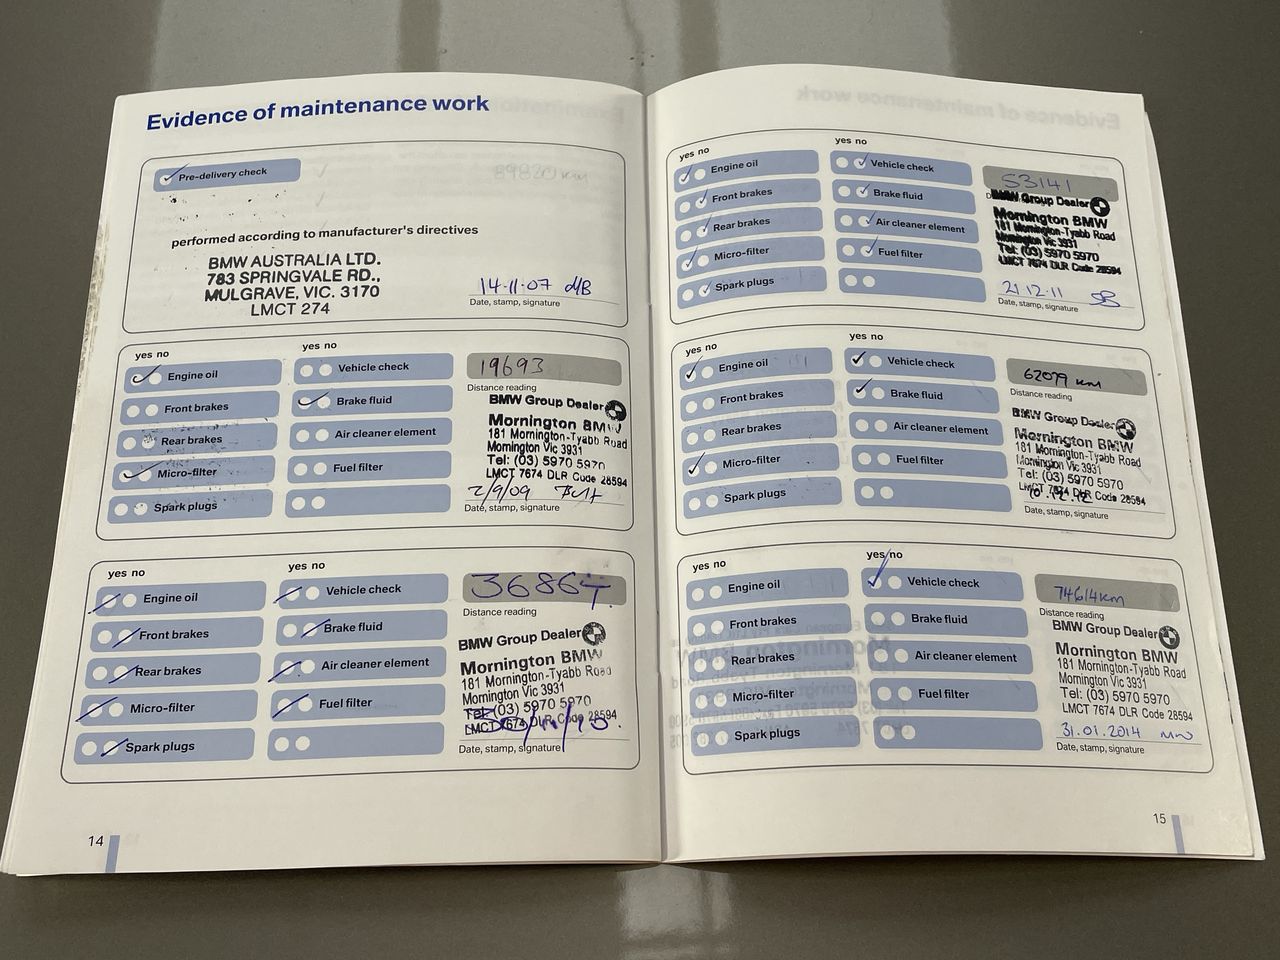 Evidence of maintenance work
Pre-delivery check
performed according to manufacturer's directives
BMW AUSTRALIA LTD.
783 SPRINGVALE RD.,
MULGRAVE, VIC. 3170
LMCT 274
14·11·07
Date, stamp, signature
yes no
Engine oil
Front brakes
Rear brakes
Micro-filter
Spark plugs
yes no
Vehicle check
Brake fluid
Air cleaner element
Fuel filter
19693
Distance reading
BMW Group Dealer
Mornington BMW
181 Mornington-Tyabb Road
Mornington Vic 3931
Tel: (03) 5970 5970
LMCT 7674 DLR Code 28594
2/9/09
Date, stamp, signature
yes no
Engine oil
Front brakes
Rear brakes
Micro-filter
Spark plugs
yes no
Vehicle check
Brake fluid
Air cleaner element
Fuel filter
36864
Distance reading
BMW Group Dealer
Mornington BMW
181 Mornington-Tyabb Road
Mornington Vic 3931
Tel: (03) 5970 5970
LMCT 7674 DLR Code 28594
Date, stamp, signature
14
yes no
Engine oil
Front brakes
Rear brakes
Micro-filter
Spark plugs
yes no
Vehicle check
Brake fluid
Air cleaner element
Fuel filter
53141
BMW Group Dealer
Mornington BMW
181 Mornington-Tyabb Road
Mornington Vic 3931
Tel: (03) 5970 5970
LMCT 7674 DLR Code 28594
21.12.11 SB
Date, stamp, signature
yes no
Engine oil
Front brakes
Rear brakes
Micro-filter
Spark plugs
yes no
Vehicle check
Brake fluid
Air cleaner element
Fuel filter
62079 km
Distance reading
BMW Group Dealer
Mornington BMW
181 Mornington-Tyabb Road
Mornington Vic 3931
Tel: (03) 5970 5970
LMCT 7674 DLR Code 28594
10.12.12
Date, stamp, signature
yes no
Engine oil
Front brakes
Rear brakes
Micro-filter
Spark plugs
yes no
Vehicle check
Brake fluid
Air cleaner element
Fuel filter
74614km
Distance reading
BMW Group Dealer
Mornington BMW
181 Mornington-Tyabb Road
Mornington Vic 3931
Tel: (03) 5970 5970
LMCT 7674 DLR Code 28594
31.01.2014
Date, stamp, signature
15